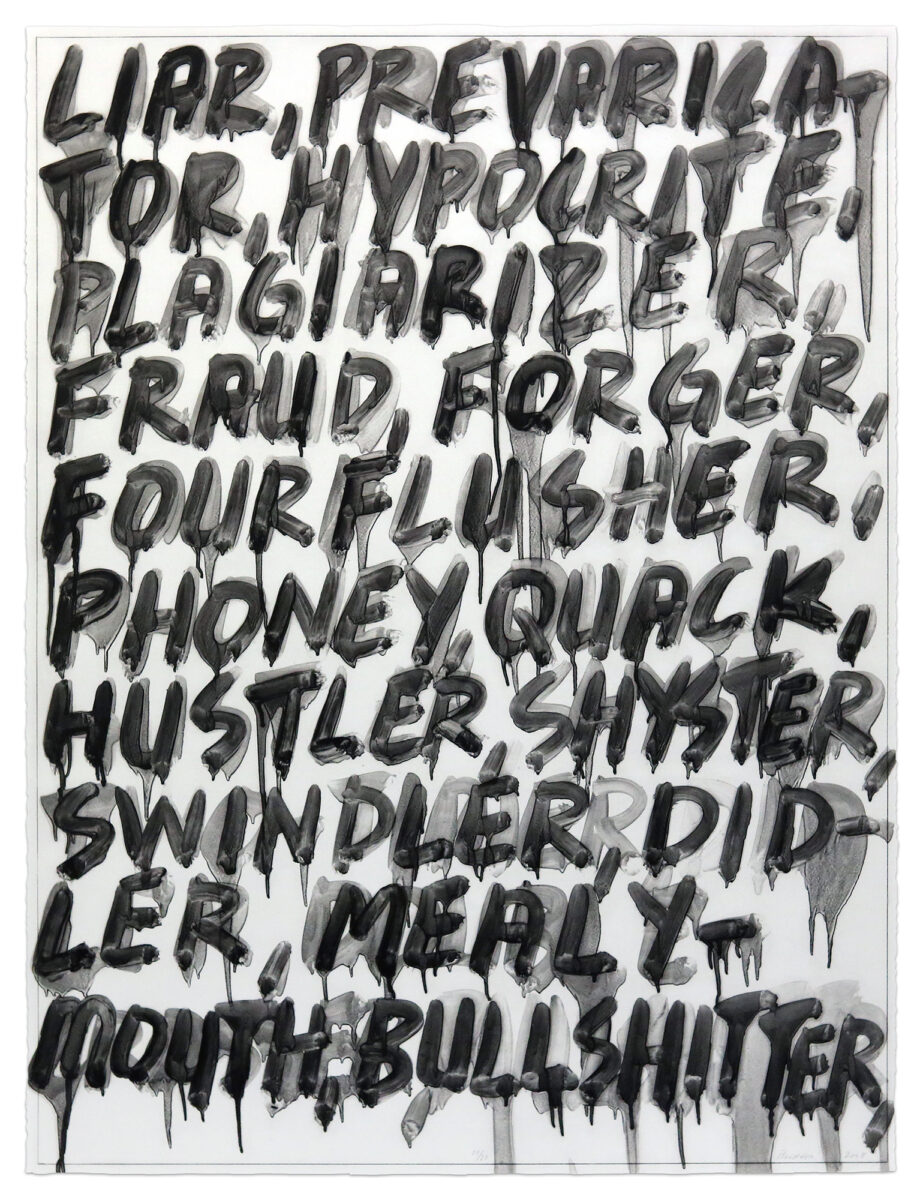 LIAR, PREVARICA-
TOR, HYPOCRITE,
PLAGIARIZER,
FRAUD, FORGER,
FOURFLUSHER,
PHONEY, QUACK,
HUSTLER, SHYSTER,
SWINDLER, DID-
LER, MEALY-
MOUTH, BULLSHITTER,